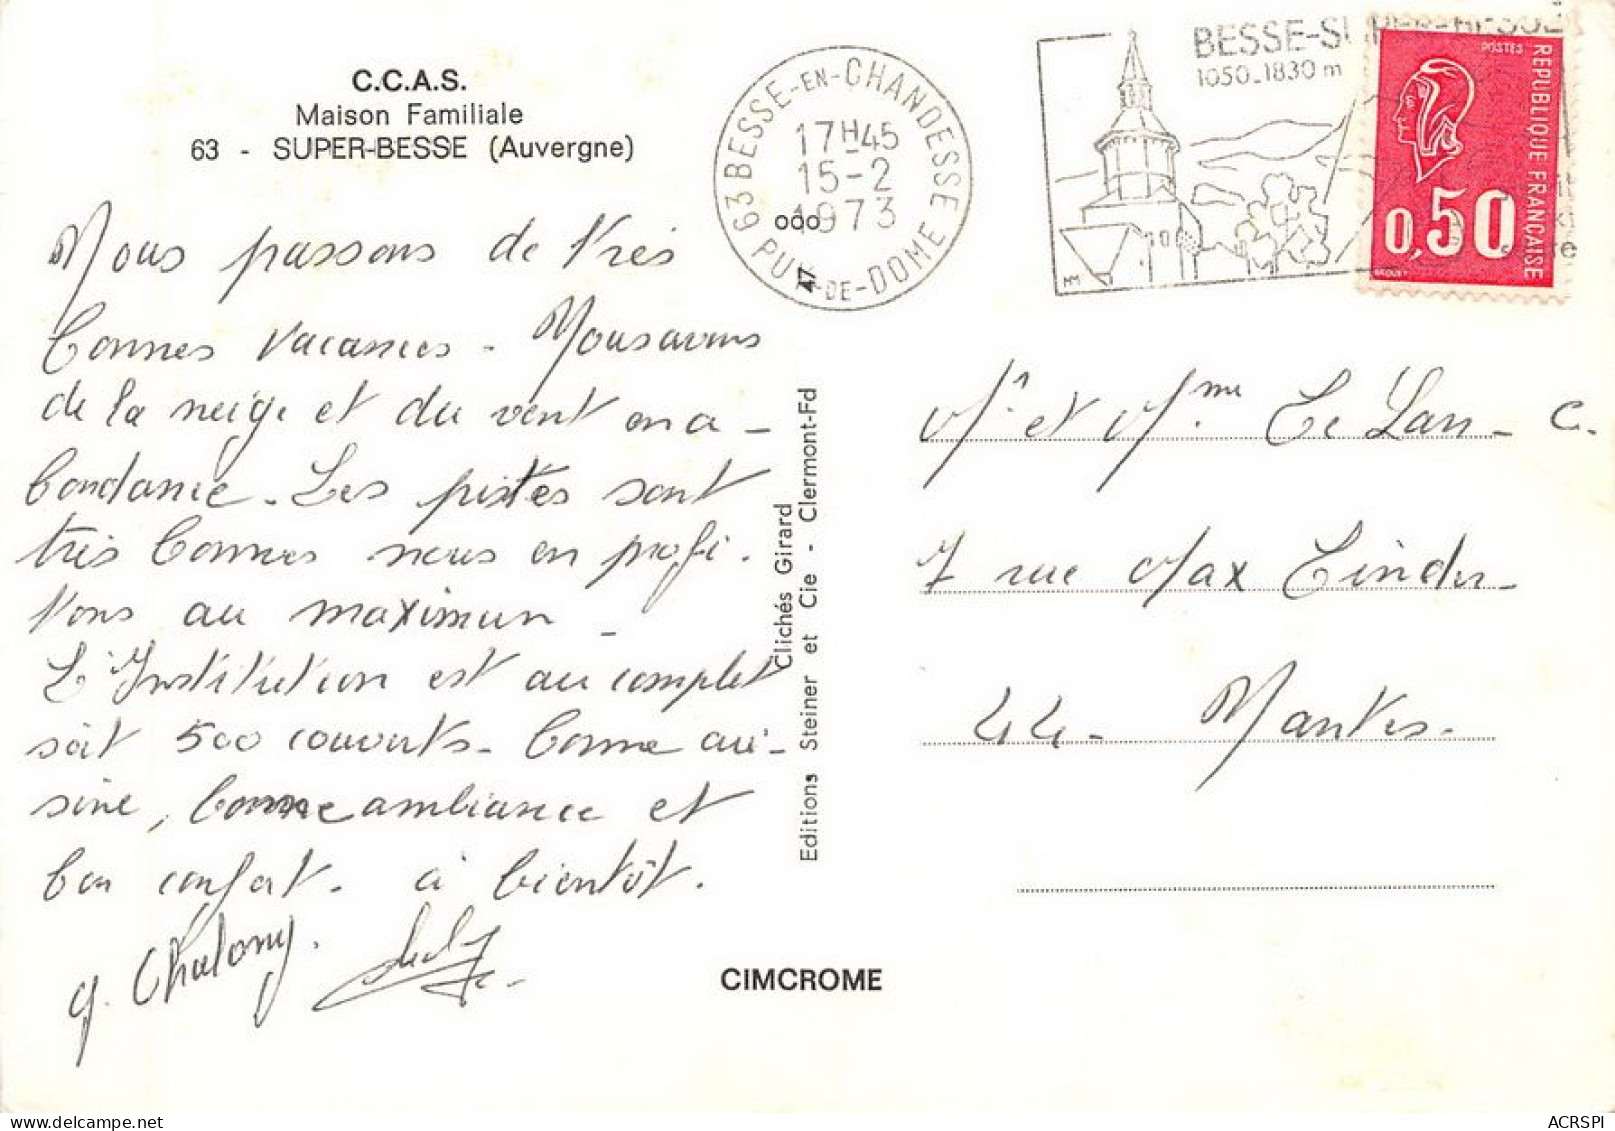 C.C.A.S.
Maison Familiale
63 - SUPER-BESSE (Auvergne)
Nous passons de très
bonnes vacances - Nous avons
de la neige et du vent en a -
bondance - Les pistes sont
très bonnes nous en profi -
tons au maximum -
L'Institution est au complet
soit 500 couverts - bonne cui -
sine, bonne ambiance et
bon confort - à bientôt.
Editions Steiner et Cie - Clermont-Fd
Clichés Girard
CIMCROME
63 BESSE-EN-CHANDESSE
17H45
15-2
1973
PUY-DE-DOME
ooo
47
BESSE-SUPER-BESSE
1050-1830 m
POSTES
REPUBLIQUE FRANÇAISE
0,50
Mr et Mme Le Lan - C.
7 rue Max Linder -
44 - Nantes -
ACRSPI